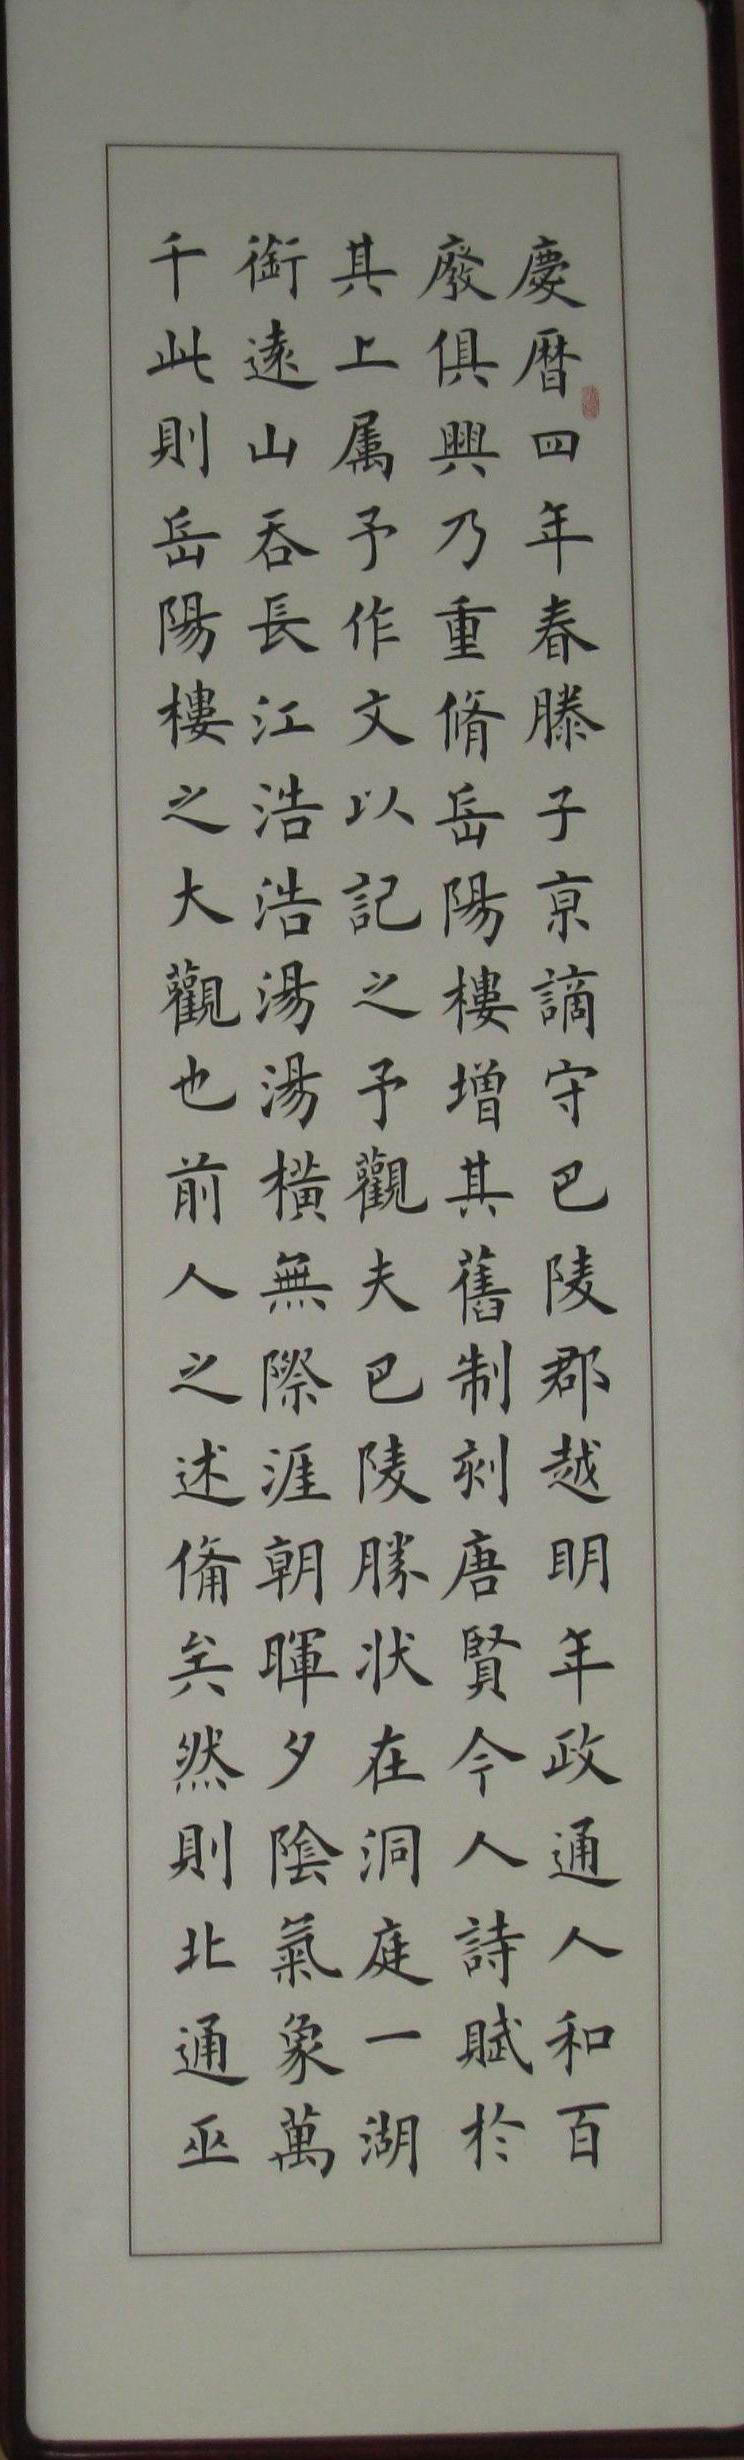 慶曆四年春滕子京謫守巴陵郡越明年政通人和百
廢俱興乃重脩岳陽樓增其舊制刻唐賢今人詩賦於
其上属予作文以記之予觀夫巴陵勝状在洞庭一湖
銜遠山吞長江浩浩湯湯橫無際涯朝暉夕陰氣象萬
千此則岳陽樓之大觀也前人之述備矣然則北通巫